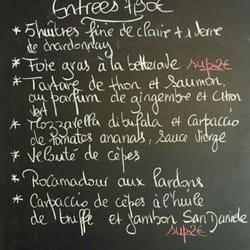 Entrées 7,50€
* 5 huîtres fine de claire + 1 verre
de chardonnay
* Foie gras à la betterave sup 2€
* Tartare de thon et saumon
au parfum de gingembre et citron
vert
* Mozzarella di bufala et Carpaccio
de tomates ananas, sauce vierge
* Velouté de cèpes
* Rocamadour aux lardons
* Carpaccio de cèpes à l'huile
de truffe et jambon San Daniele
sup 2€